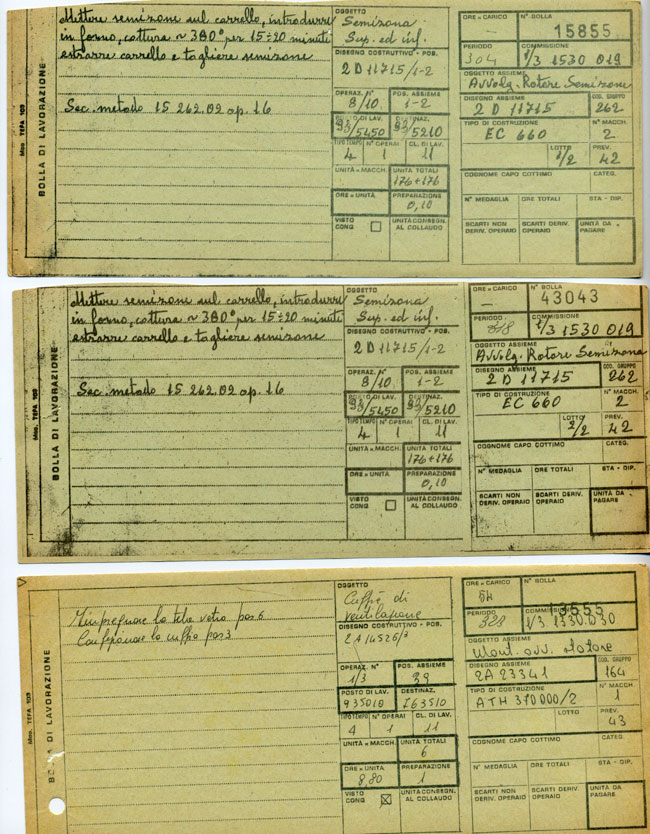 Mod. TEPA 109
BOLLA DI LAVORAZIONE
Mettere semizone sul carrello, introdurre
in forno, cottura ~ 380° per 15÷20 minuti
estrarre carrello e togliere semizone
Sec. metodo 15 262.02 op. 16
OGGETTO
Semizona
Sup. ed inf.
DISEGNO COSTRUTTIVO - POS.
2 D 11715/1-2
OPERAZ. N° POS. ASSIEME
8/10 1-2
POSTO DI LAV. DESTINAZ.
93/5450 93/5210
TIPO TEMPO N° OPERAI CL. DI LAV.
4 1 11
UNITÀ = MACCH. UNITÀ TOTALI
176+176
ORE = UNITÀ PREPARAZIONE
0,10
VISTO CONG UNITÀ CONSEGN. AL COLLAUDO
ORE = CARICO N° BOLLA
— 15855
PERIODO COMMISSIONE
304 1/3 1530 019
OGGETTO ASSIEME
Avvolg. Rotore Semizone
DISEGNO ASSIEME COD. GRUPPO
2 D 11715 262
TIPO DI COSTRUZIONE N° MACCH.
EC 660 2
LOTTO PREV.
2/2 42
COGNOME CAPO COTTIMO CATEG.
N° MEDAGLIA ORE TOTALI STA - DIP.
SCARTI NON DERIV. OPERAIO SCARTI DERIV. OPERAIO UNITÀ DA PAGARE
Mod. TEPA 109
BOLLA DI LAVORAZIONE
Mettere semizone sul carrello, introdurre
in forno, cottura ~ 380° per 15÷20 minuti
estrarre carrello e togliere semizone
Sec. metodo 15 262.02 op. 16
OGGETTO
Semizona
Sup. ed inf.
DISEGNO COSTRUTTIVO - POS.
2 D 11715/1-2
OPERAZ. N° POS. ASSIEME
8/10 1-2
POSTO DI LAV. DESTINAZ.
93/5450 93/5210
TIPO TEMPO N° OPERAI CL. DI LAV.
4 1 11
UNITÀ = MACCH. UNITÀ TOTALI
176+176
ORE = UNITÀ PREPARAZIONE
0,10
VISTO CONG UNITÀ CONSEGN. AL COLLAUDO
ORE = CARICO N° BOLLA
— 43043
PERIODO COMMISSIONE
318 1/3 1530 019
OGGETTO ASSIEME
Avvolg. Rotore Semizona
DISEGNO ASSIEME COD. GRUPPO
2 D 11715 262
TIPO DI COSTRUZIONE N° MACCH.
EC 660 2
LOTTO PREV.
2/2 42
COGNOME CAPO COTTIMO CATEG.
N° MEDAGLIA ORE TOTALI STA - DIP.
SCARTI NON DERIV. OPERAIO SCARTI DERIV. OPERAIO UNITÀ DA PAGARE
Mod. TEPA 109
BOLLA DI LAVORAZIONE
Impregnare la tela vetro pos 6
Confezionare la cuffia pos 3
OGGETTO
Cuffia di
ventilazione
DISEGNO COSTRUTTIVO - POS.
2A14526/3
OPERAZ. N° POS. ASSIEME
1/3 39
POSTO DI LAV. DESTINAZ.
935010 I63510
TIPO TEMPO N° OPERAI CL. DI LAV.
4 1 11
UNITÀ = MACCH. UNITÀ TOTALI
6
ORE = UNITÀ PREPARAZIONE
8,80 1
VISTO CONG UNITÀ CONSEGN. AL COLLAUDO
ORE = CARICO N° BOLLA
54 3555
PERIODO COMMISSIONE
328 1/3 1530.030
OGGETTO ASSIEME
Mont. avv. statore
DISEGNO ASSIEME COD. GRUPPO
2A 23341 164
TIPO DI COSTRUZIONE N° MACCH.
ATH 370000/2 1
LOTTO PREV.
43
COGNOME CAPO COTTIMO CATEG.
N° MEDAGLIA ORE TOTALI STA - DIP.
SCARTI NON DERIV. OPERAIO SCARTI DERIV. OPERAIO UNITÀ DA PAGARE